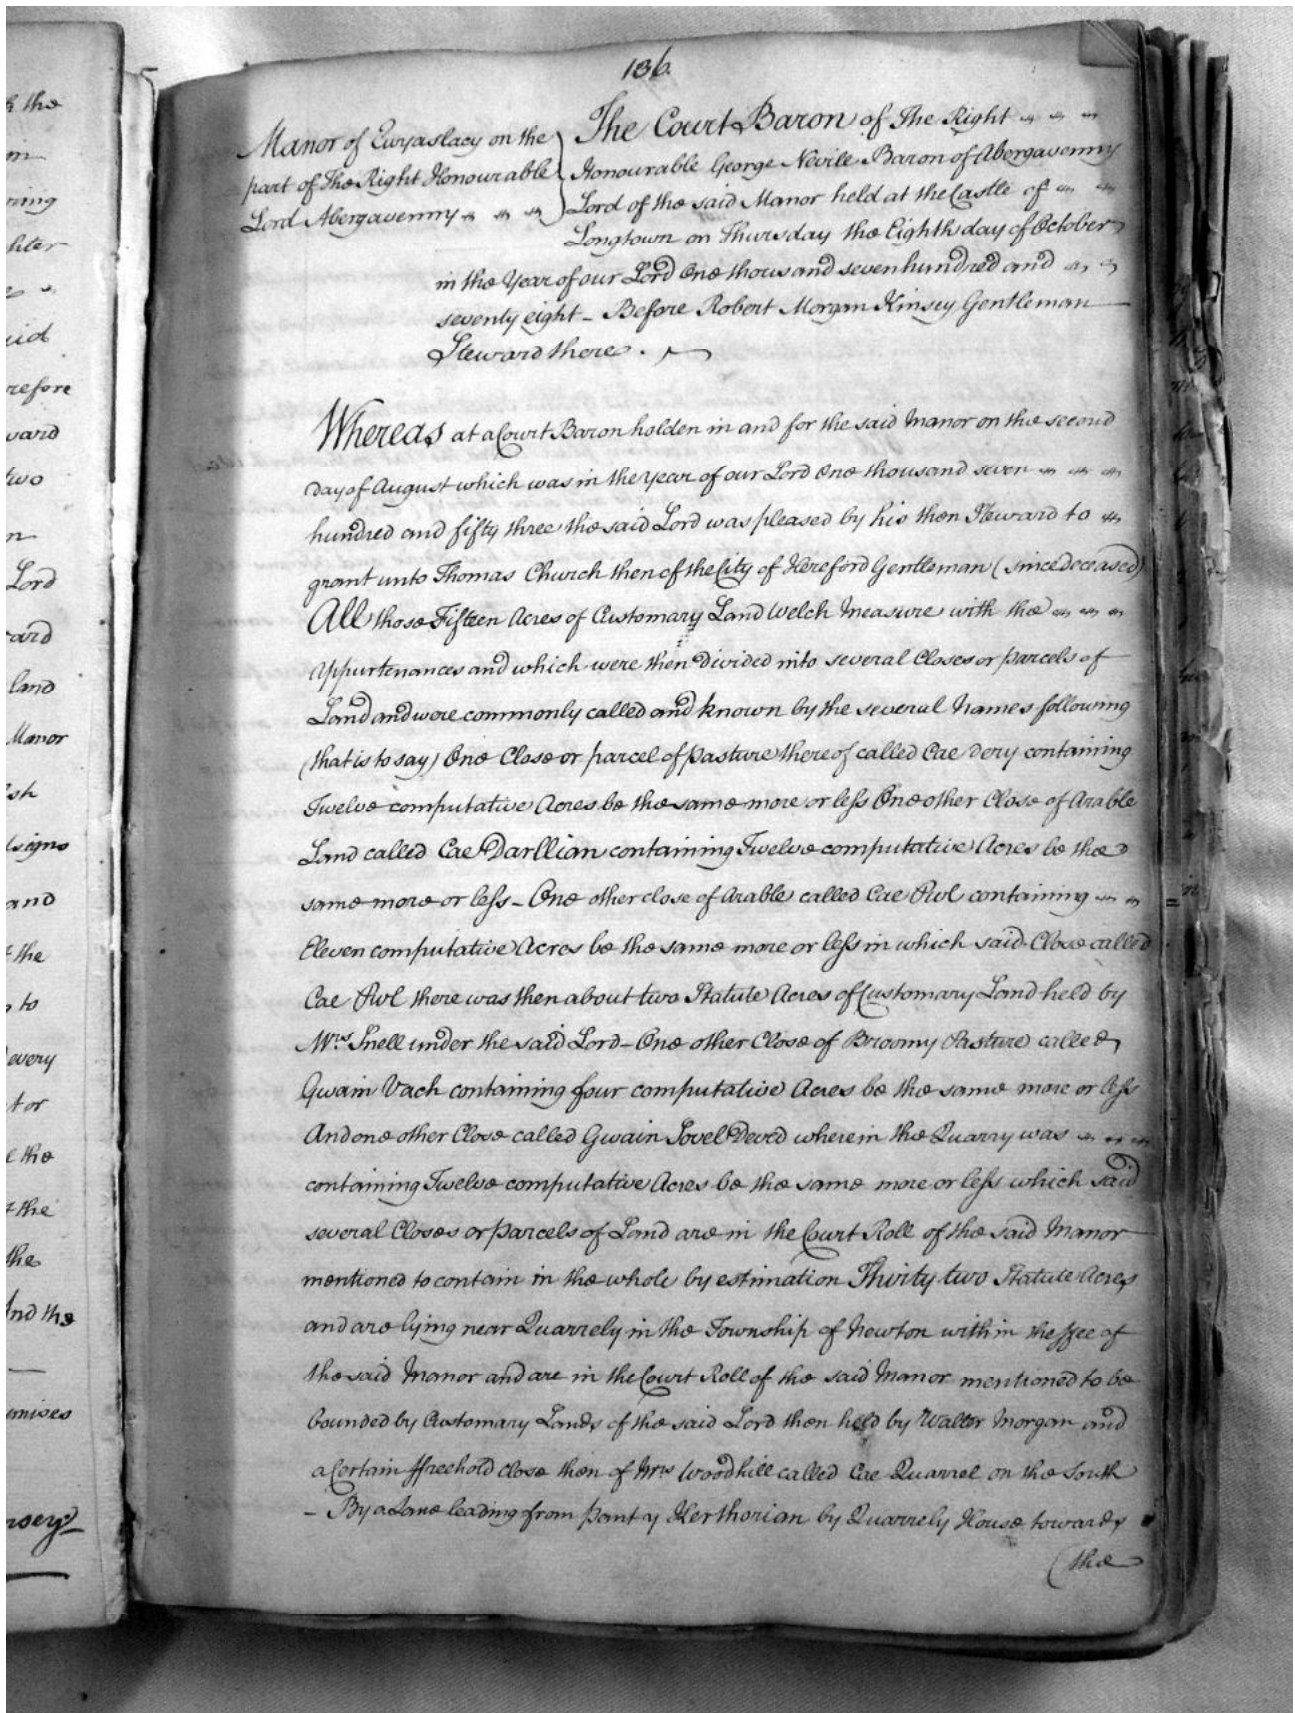 186.
Manor of Ewyaslacy on the
part of The Right Honourable
Lord Abergavenny
The Court Baron of The Right
Honourable George Nevile Baron of Abergavenny
Lord of the said Manor held at the Castle of
Longtown on Thursday the Eighth day of October
in the Year of our Lord One thousand seven hundred and
seventy eight - Before Robert Morgan Kinsey Gentleman
Steward there.
Whereas at a Court Baron holden in and for the said Manor on the second
day of August which was in the year of our Lord One thousand seven
hundred and fifty three the said Lord was pleased by his then Steward to
grant unto Thomas Church then of the City of Hereford Gentleman (since deceased)
All those Fifteen Acres of Customary Land Welch Measure with the
Appurtenances and which were then divided into several Closes or parcels of
Land and were commonly called and known by the several Names following
(that is to say) One Close or parcel of pasture thereof called Cae dery containing
Twelve computative Acres be the same more or less One other Close of Arable
Land called Cae Darllian containing Twelve computative Acres be the
same more or less - One other close of Arable called Cae Pwl containing
Eleven computative Acres be the same more or less in which said Close called
Cae Pwl there was then about two Statute Acres of Customary Land held by
Mrs. Snell under the said Lord - One other Close of Broomy Pasture called
Gwain Vach containing four computative Acres be the same more or less
And one other Close called Gwain Sovel Deved wherein the Quarry was
containing Twelve computative Acres be the same more or less which said
several Closes or parcels of Land are in the Court Roll of the said Manor
mentioned to contain in the whole by estimation Thirty two Statute Acres
and are lying near Quarrely in the Township of Newton within the ffee of
the said Manor and are in the Court Roll of the said Manor mentioned to be
bounded by Customary Lands of the said Lord then held by Walter Morgan and
a Certain ffreehold close then of Mrs Woodhill called Cae Quarrel on the South
- By a Lane leading from pant y Kerthorian by Quarrely House towards
(the
k the
ring
hter
refore
ward
two
Lord
land
Manor
signs
and
the
to
every
t or
the
the
the
And the
emises